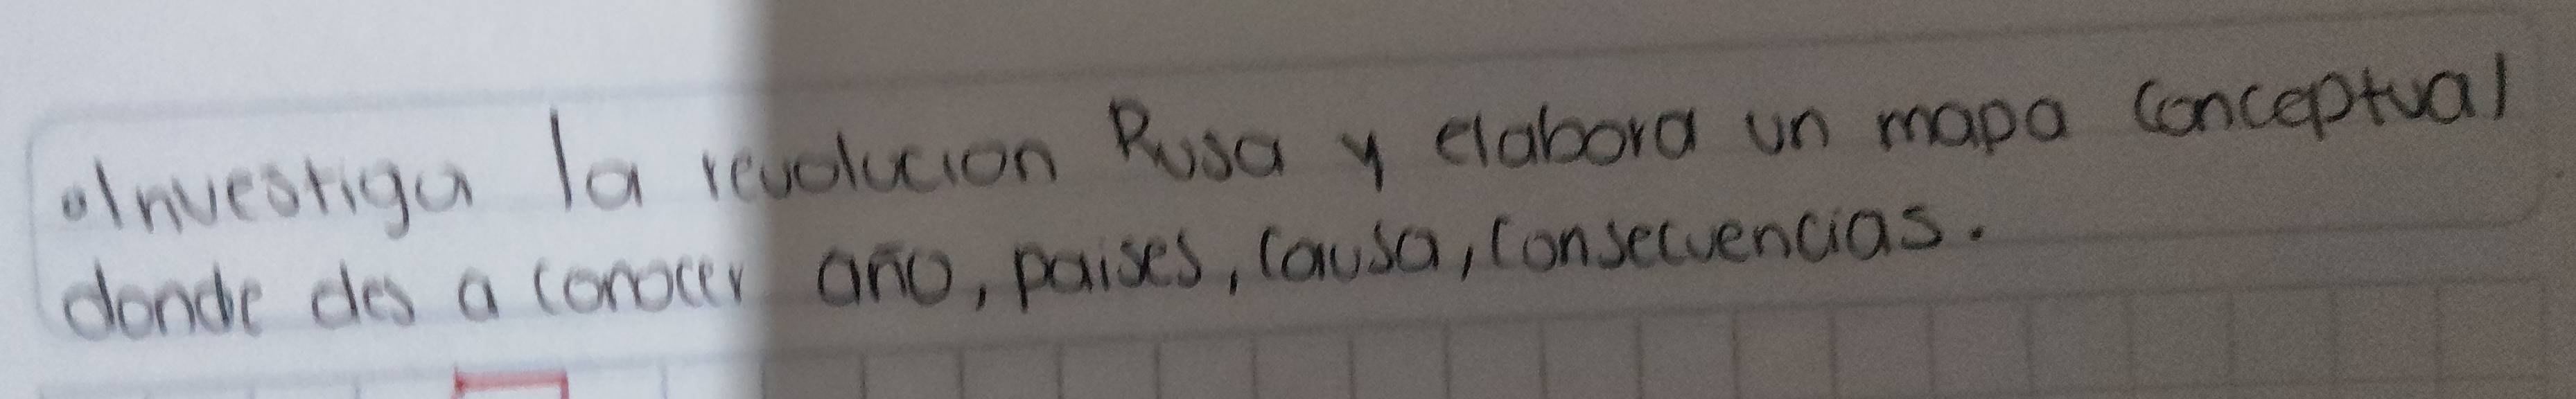 •Investiga la revolucion Rusa y elabora un mapa conceptual
donde des a conocer año, paises, causa, consecuencias.